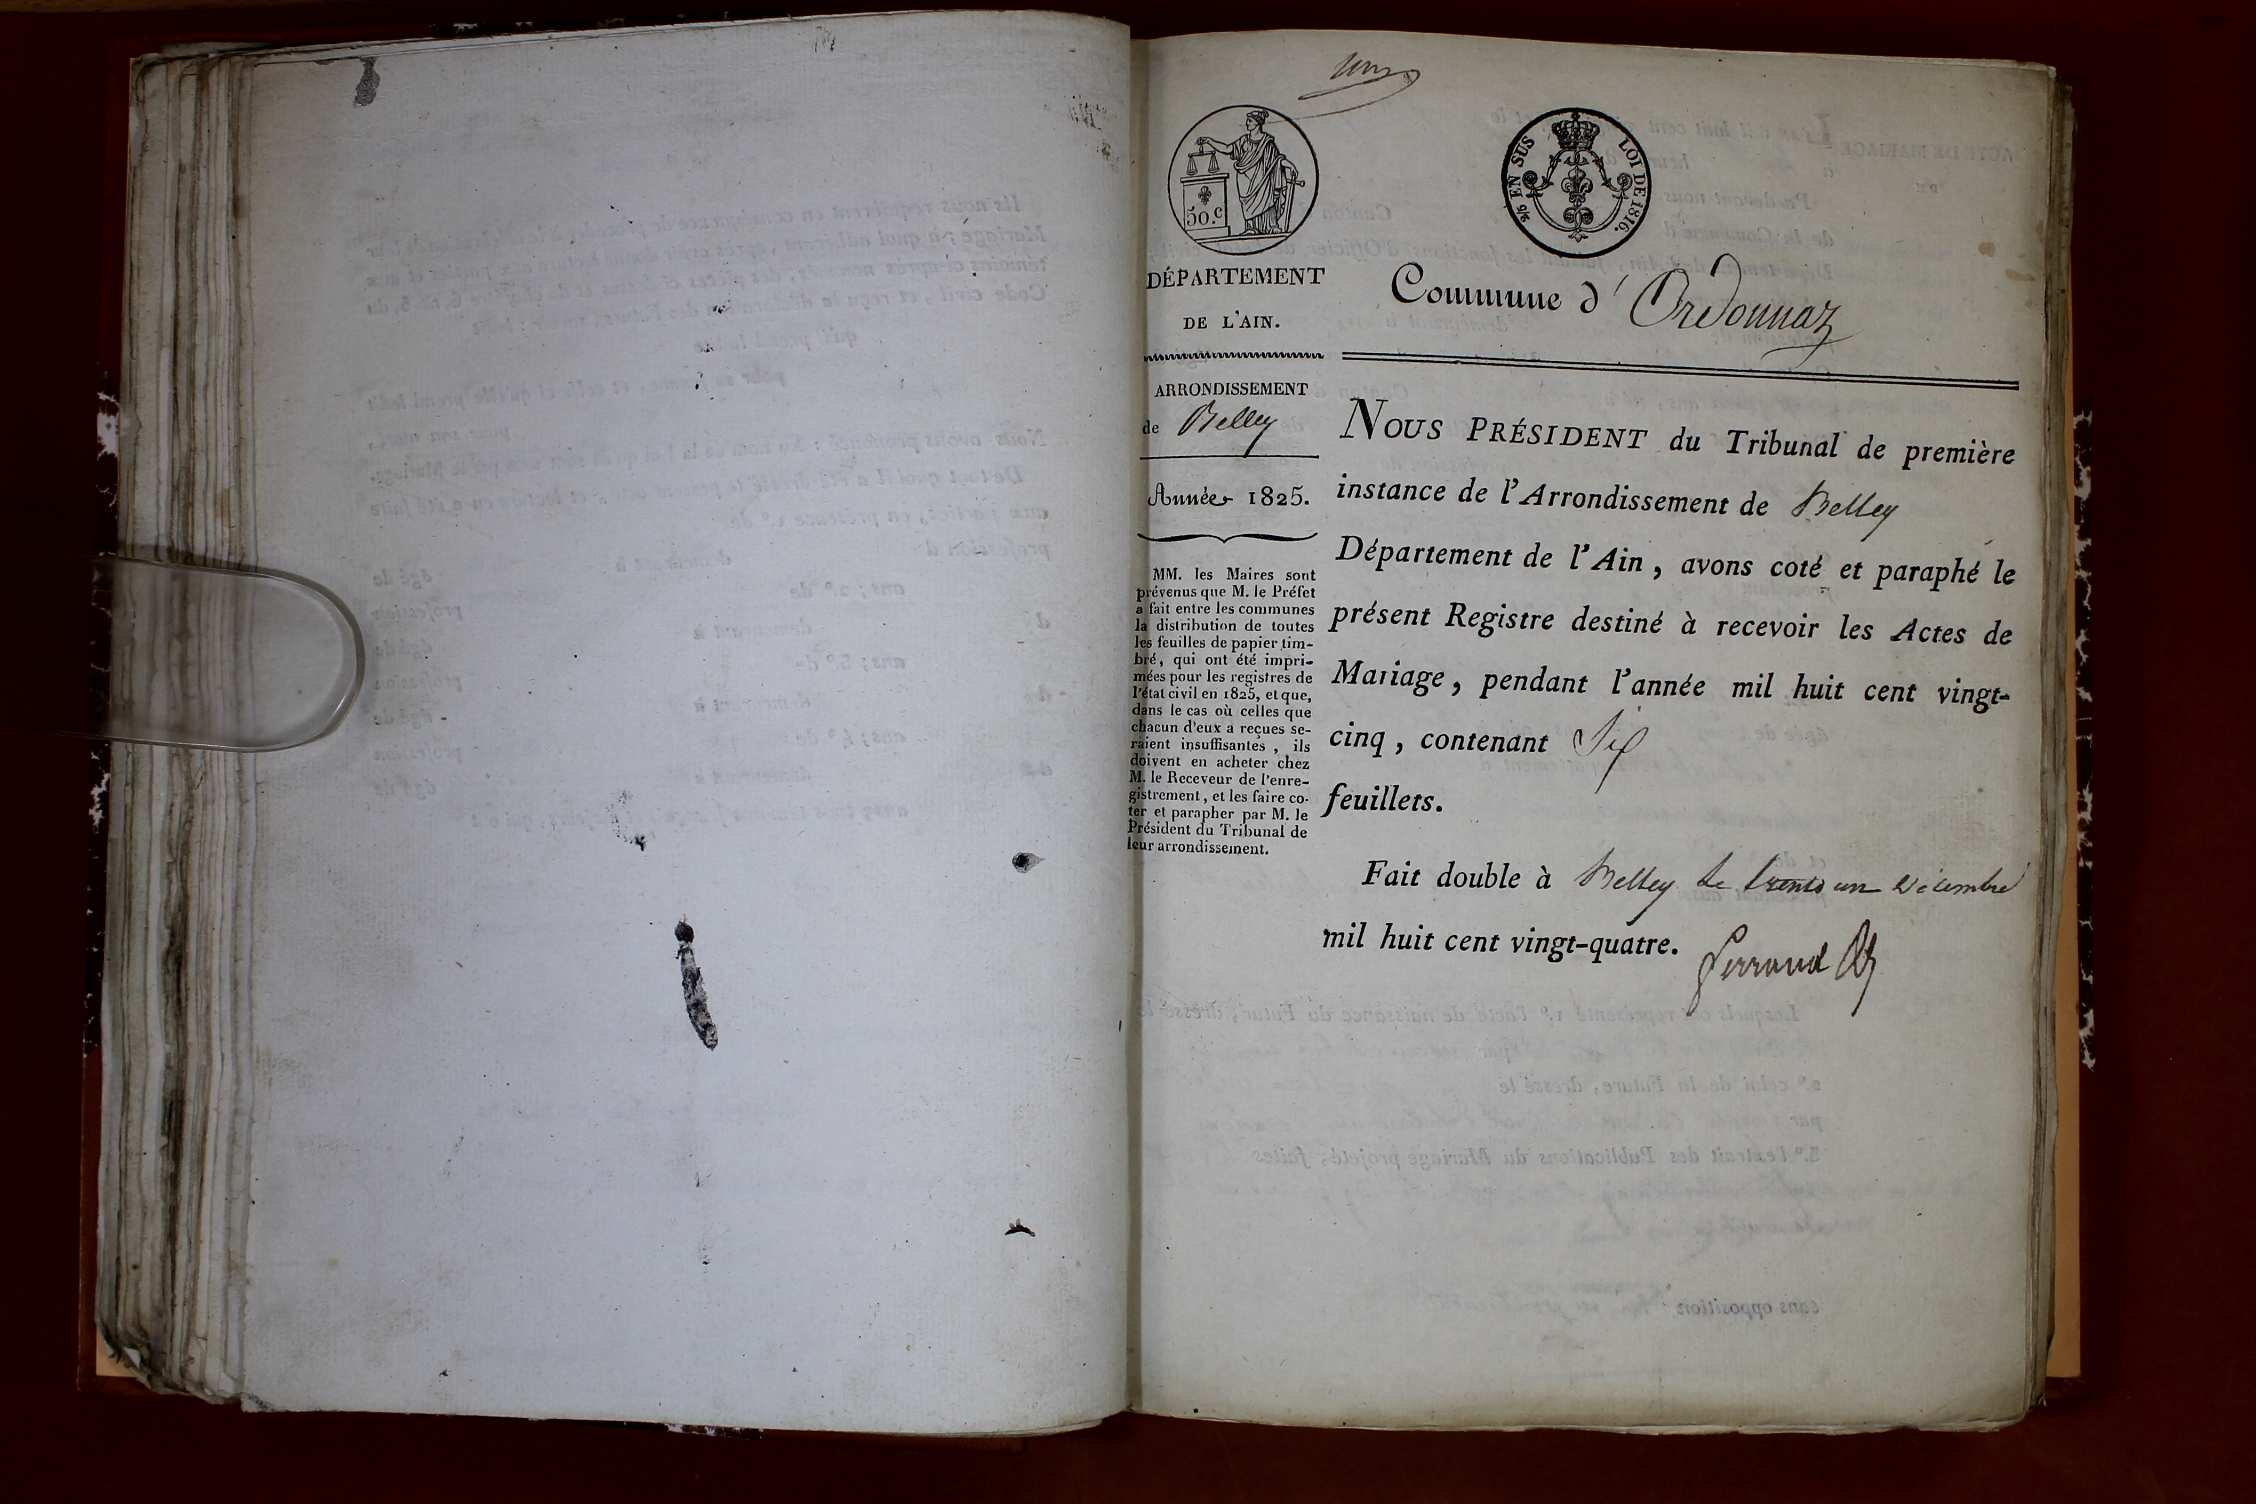 un
50.c
2/5 EN SUS LOI DE 1816.
DÉPARTEMENT
DE L'AIN.
Commune d'Ordonnaz
ARRONDISSEMENT
de Belley
Année 1825.
MM. les Maires sont
prévenus que M. le Préfet
a fait entre les communes
la distribution de toutes
les feuilles de papier tim-
bré, qui ont été impri-
mées pour les registres de
l'état civil en 1825, et que,
dans le cas où celles que
chacun d'eux a reçues se-
raient insuffisantes, ils
doivent en acheter chez
M. le Receveur de l'enre-
gistrement, et les faire co-
ter et parapher par M. le
Président du Tribunal de
leur arrondissement.
NOUS PRÉSIDENT du Tribunal de première
instance de l'Arrondissement de Belley
Département de l'Ain, avons coté et paraphé le
présent Registre destiné à recevoir les Actes de
Mariage, pendant l'année mil huit cent vingt-
cinq, contenant Six
feuillets.
Fait double à Belley le trente un Décembre
mil huit cent vingt-quatre.